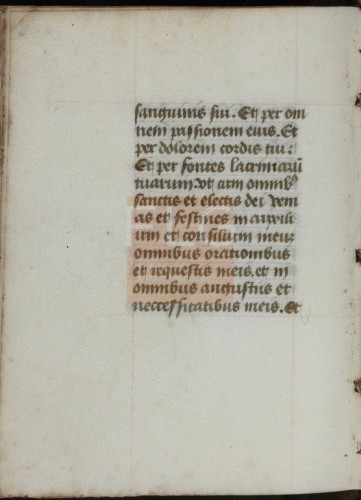 sanguinis sui. Et per om
nem passionem eius. Et
per dolorem cordis tui:
Et per fontes lacrimarū
tuarum vt cum omnibꝰ
sanctis et electis dei veni
as et festines in auxili
um et consilium meuꝫ
omnibus orationibus
et requestis meis. et in
omnibus angustiis et
neccessitatibus meis. Et